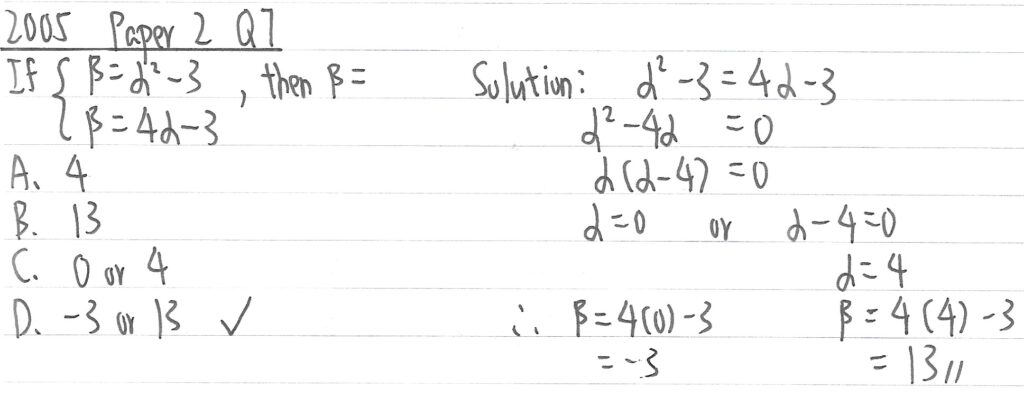 2005 Paper 2 Q7
If { β = α² - 3 , then β =
β = 4α - 3
A. 4
B. 13
C. 0 or 4
D. -3 or 13 ✓
Solution: α² - 3 = 4α - 3
α² - 4α = 0
α(α - 4) = 0
α = 0 or α - 4 = 0
α = 4
∴ β = 4(0) - 3 β = 4(4) - 3
= -3 = 13 //